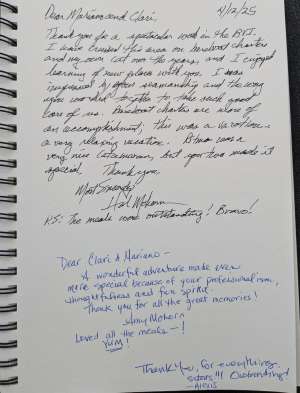 4/12/25
Dear Mariano and Clari,
Thank you for a spectacular week in the BVI.
I have cruised this area on bareboat charters
and my own cat over the years, and I enjoyed
learning of new places with you. I was
impressed by your seamanship and the way
you worked together to take such good
care of us. Bareboat charters are more of
an accomplishment; this was a vacation -
a very relaxing vacation. was a
very nice catamaran, but you two made it
special. Thank you,
Most Sincerely
Hal Mohorn
P.S. The meals were outstanding! Bravo!
Dear Clari & Mariano -
A wonderful adventure made even
more special because of your professionalism,
thoughtfulness and fun spirit.
Thank you for all the great memories!
Amy Mohorn
Loved all the meals -!
YUM!
Thank you, for everything
Outstanding!
- Alexis